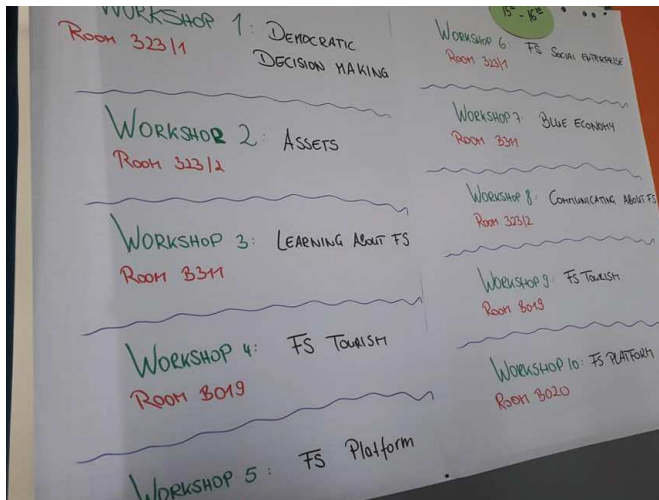 WORKSHOP 1:
DEMOCRATIC
DECISION MAKING
ROOM 323/1
WORKSHOP 2: ASSETS
ROOM 323/2
WORKSHOP 3: LEARNING ABOUT FS
ROOM B311
WORKSHOP 4: FS TOURISM
ROOM B019
WORKSHOP 5: FS Platform
WORKSHOP 6: FS SOCIAL ENTERPRISE
ROOM 323/1
WORKSHOP 7: BLUE ECONOMY
ROOM B311
WORKSHOP 8: COMMUNICATING ABOUT FS
ROOM 323/2
WORKSHOP 9: FS TOURISM
ROOM B019
WORKSHOP 10: FS PLATFORM
ROOM B020